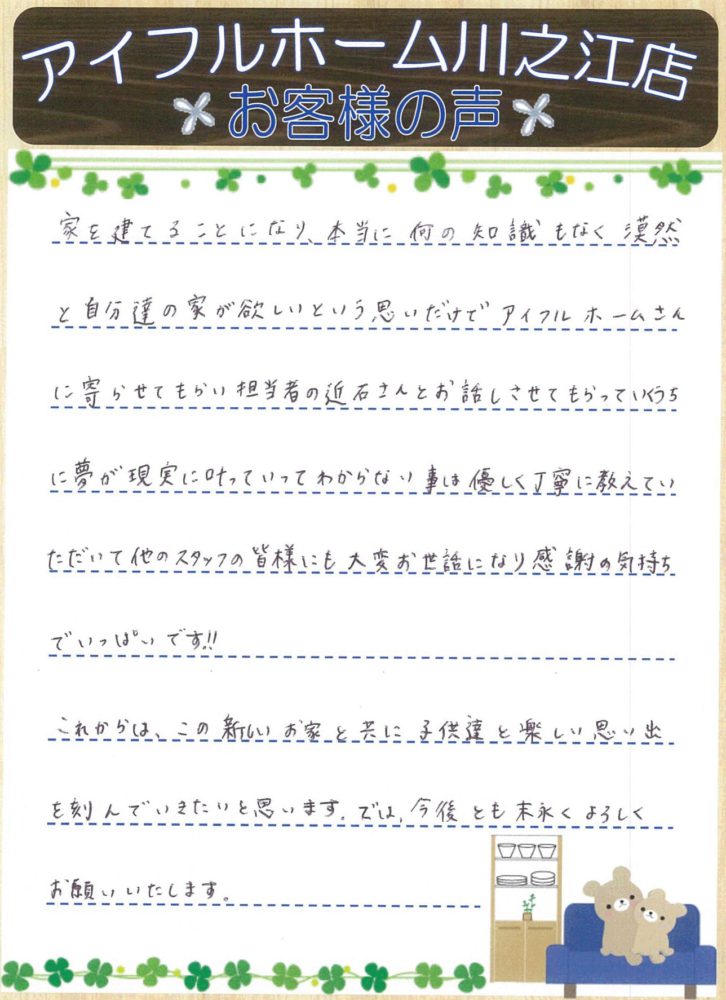 アイフルホーム川之江店
お客様の声
家を建てることになり、本当に何の知識もなく漠然
と自分達の家が欲しいという思いだけでアイフルホームさん
に寄らせてもらい担当者の近石さんとお話しさせてもらっていくうち
に夢が現実に叶っていってわからない事は優しく丁寧に教えてい
ただいて他のスタッフの皆様にも大変お世話になり感謝の気持ち
でいっぱいです!!
これからは、この新しいお家と共に子供達と楽しい思い出
を刻んでいきたいと思います。では、今後とも末永くよろしく
お願いいたします。